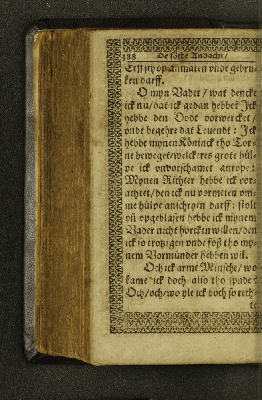 188 De sôste Andacht/
Erffschop anmaten vnde gebru-
ken darff.
O myn Vader / wat dencke
ick nu / dat ick gedan hebbe? Ick
hebbe den Dodt vorwercket /
vnde begehre dat Leuendt : Ick
hebbe mynen Köninck tho Tor-
ne beweget / welckeres grote hül-
pe ick vnvorschamet anrope :
Mynen Richter hebbe ick vor-
achtet / den ick nu vormeten vm-
me hülpe anschryen darff : stolt
vñ opgeblasen hebbe ick mynem
Vader nicht horcken willen / den
ick so trotzigen vnde tho my-
nem Vormünder hebben wil.
Och ick arme Minsche / wo
kame ick doch also tho spade?
Och / och / wo yle ick doch so rech-